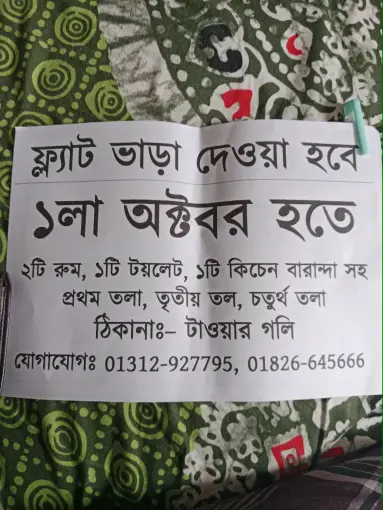 ফ্ল্যাট ভাড়া দেওয়া হবে
১লা অক্টবর হতে
২টি রুম, ১টি টয়লেট, ১টি কিচেন বারান্দা সহ
প্রথম তলা, তৃতীয় তল, চতুর্থ তলা
ঠিকানাঃ– টাওয়ার গলি
যোগাযোগঃ 01312-927795, 01826-645666